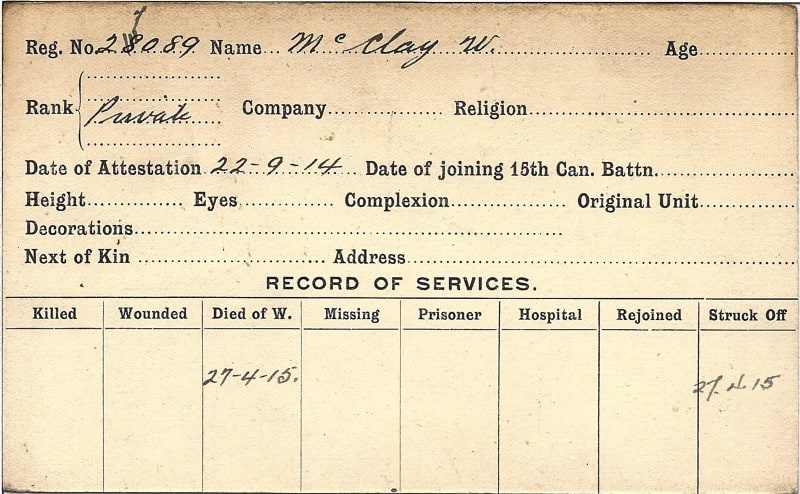 Reg. No. 27089 Name Mc Clay W. Age
Rank Private Company Religion
Date of Attestation 22-9-14 Date of joining 15th Can. Battn.
Height Eyes Complexion Original Unit
Decorations
Next of Kin Address
RECORD OF SERVICES.
Killed Wounded Died of W. Missing Prisoner Hospital Rejoined Struck Off
27-4-15. 27.4.15